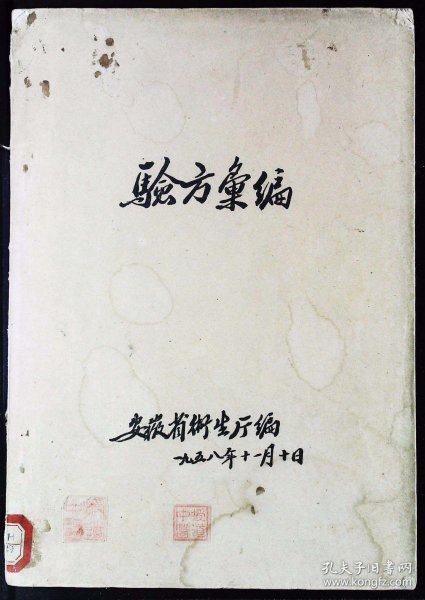 驗方彙編
安徽省衛生厅編
一九五八年十一月十日
孔夫子旧书网
www.kongfz.com